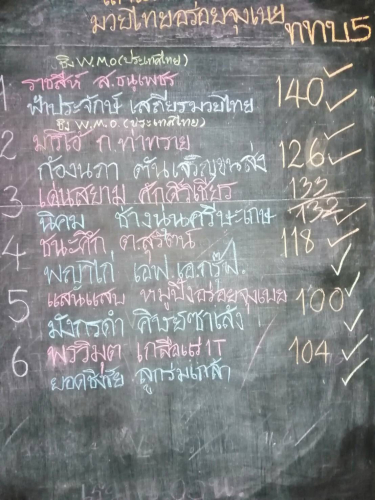 มวยไทยอร่อยจุงเบย ททบ5
ชิง W.M.O (ประเทศไทย)
1 ราชสีห์ ส.ธนูเพชร 140
ฟ้าประจักษ์ เสถียรมวยไทย
ชิง W.M.O. (ประเทศไทย)
2 มาริโอ้ ก.ท่าทราย 126
ก้องนภา ตันเจริญขนส่ง
3 เด่นสยาม ศักดิ์ศิวิเชียร 133
นิคม ช่างนุ่นศรีษะเกษ 132
4 ชนะศึก ต.สุรัตน์ 118
พญาไก่ เอฟ.เอ.กรุ๊ป.
5 แสนแสบ หมูปิ้งอร่อยจุงเบย 100
มังกรดำ ศิษย์ซาเล้ง
6 พรวิมุต เกลือแร่ IT 104
ยอดชิงชัย ลูกร่มเกล้า